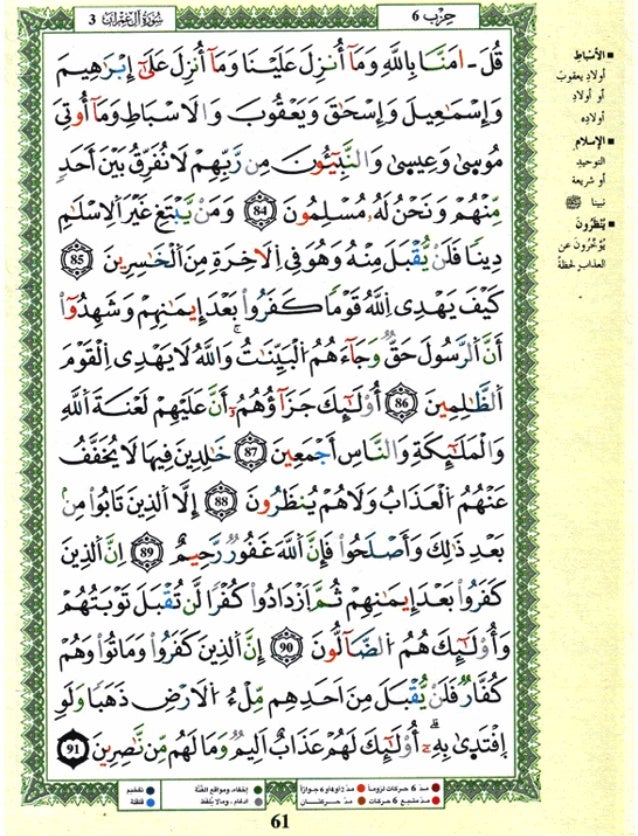 حِزْب 6
سُورَةُ آلِ عِمْرَان 3
قُلَ ـ امَنَّا بِاللَّهِ وَمَآ أُنزِلَ عَلَيْنَا وَمَآ أُنزِلَ عَلَىٰٓ إِبْرَٰهِيمَ
وَإِسْمَٰعِيلَ وَإِسْحَٰقَ وَيَعْقُوبَ وَالَاسْبَاطِ وَمَآ أُوتِيَ
مُوسِىٰ وَعِيسِىٰ وَالنَّبِيٓـُٔونَ مِن رَّبِّهِمْ لَا نُفَرِّقُ بَيْنَ أَحَدٍ
مِّنْهُمْ وَنَحْنُ لَهُۥ مُسْلِمُونَ 84 وَمَنْ يَّبْتَغِ غَيْرَ اَلِاسْلَٰمِ
دِينًا فَلَنْ يُّقْبَلَ مِنْهُ وَهُوَ فِي اِلَاخِرَةِ مِنَ اَلْخَٰسِرِينَ 85
كَيْفَ يَهْدِى اِللَّهُ قَوْمًا كَفَرُواْ بَعْدَ إِيمَٰنِهِمْ وَشَهِدُوٓاْ
أَنَّ اَلرَّسُولَ حَقٌّ وَجَآءَهُمُ اَلْبَيِّنَٰتُ وَاللَّهُ لَا يَهْدِى اِلْقَوْمَ
اَلظَّٰلِمِينَ 86 أُوْلَٰٓئِكَ جَزَآؤُهُمُۥٓ أَنَّ عَلَيْهِمْ لَعْنَةَ اَللَّهِ
وَالْمَلَٰٓئِكَةِ وَالنَّاسِ أَجْمَعِينَ 87 خَٰلِدِينَ فِيهَا لَا يُخَفَّفُ
عَنْهُمُ اُلْعَذَابُ وَلَا هُمْ يُنظَرُونَ 88 إِلَّا اَلذِينَ تَابُواْ مِنۢ
بَعْدِ ذَٰلِكَ وَأَصْلَحُواْ فَإِنَّ اَللَّهَ غَفُورٌ رَّحِيمٌ 89 اِنَّ اَلذِينَ
كَفَرُواْ بَعْدَ إِيمَٰنِهِمْ ثُمَّ اَزْدَادُواْ كُفْرًا لَّن تُقْبَلَ تَوْبَتُهُمْ
وَأُوْلَٰٓئِكَ هُمُ اُلضَّآلُّونَ 90 إِنَّ اَلذِينَ كَفَرُواْ وَمَاتُواْ وَهُمْ
كُفَّارٌ فَلَنْ يُّقْبَلَ مِنَ اَحَدِهِم مِّلْءُ اُلَارْضِ ذَهَبًا وَلَوِ
اِفْتَدِىٰ بِهِۦٓ أُوْلَٰٓئِكَ لَهُمْ عَذَابٌ اَلِيمٌ وَمَا لَهُم مِّن نَّٰصِرِينَ 91
■ الأَسْبَاطِ
أولادِ يعقوبَ
أو أولادِ
أولادِه
■ الإسلامِ
التوحيدِ
أو شريعة
نبينا ﷺ
■ يُنْظَرُونَ
يُؤَخَّرُونَ عن
العذابِ لحظةً
● مد 6 حركات لزوماً ● مد 2 أو 4 أو 6 جوازاً
● مد مشبع 6 حركات ● مد حركتان
● إخفاء، ومواقع الغُنَّة
● ادغام، ومالا يُلفظ
● تفخيم
● قلقلة
61